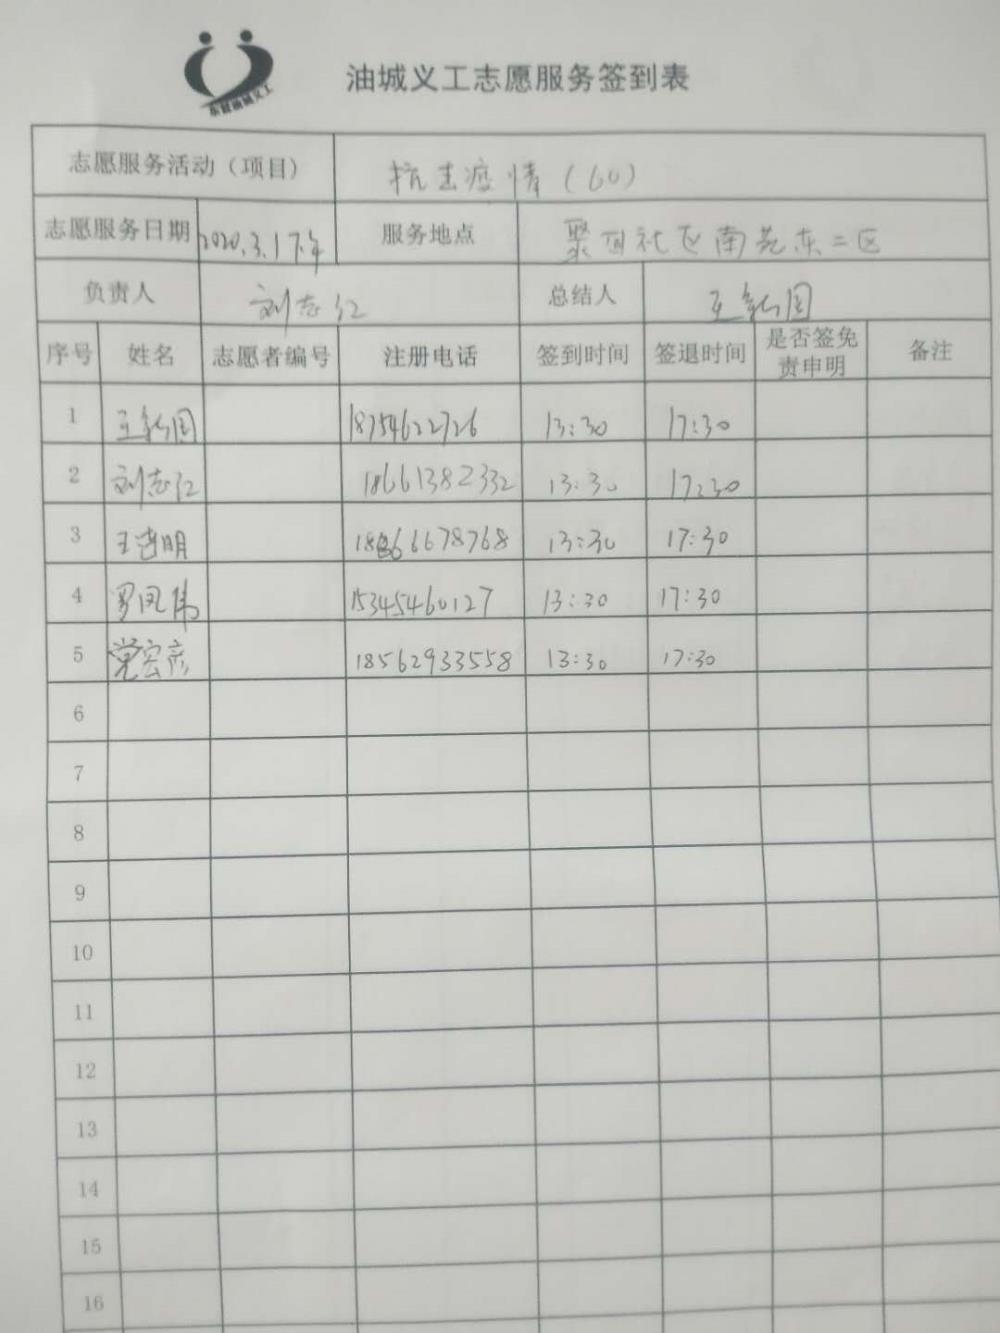 东营油城义工
油城义工志愿服务签到表
志愿服务活动（项目） 抗击疫情（60）
志愿服务日期 2020.3.1下午 服务地点 聚园社区南苑东二区
负责人 刘志红 总结人 王新国
序号 姓名 志愿者编号 注册电话 签到时间 签退时间 是否签免责申明 备注
1 王新国 18754622726 13:30 17:30
2 刘志红 18661382332 13:30 17:30
3 王 明 18666678768 13:30 17:30
4 罗凤伟 15345460127 13:30 17:30
5 党宏彦 18562933558 13:30 17:30
6
7
8
9
10
11
12
13
14
15
16